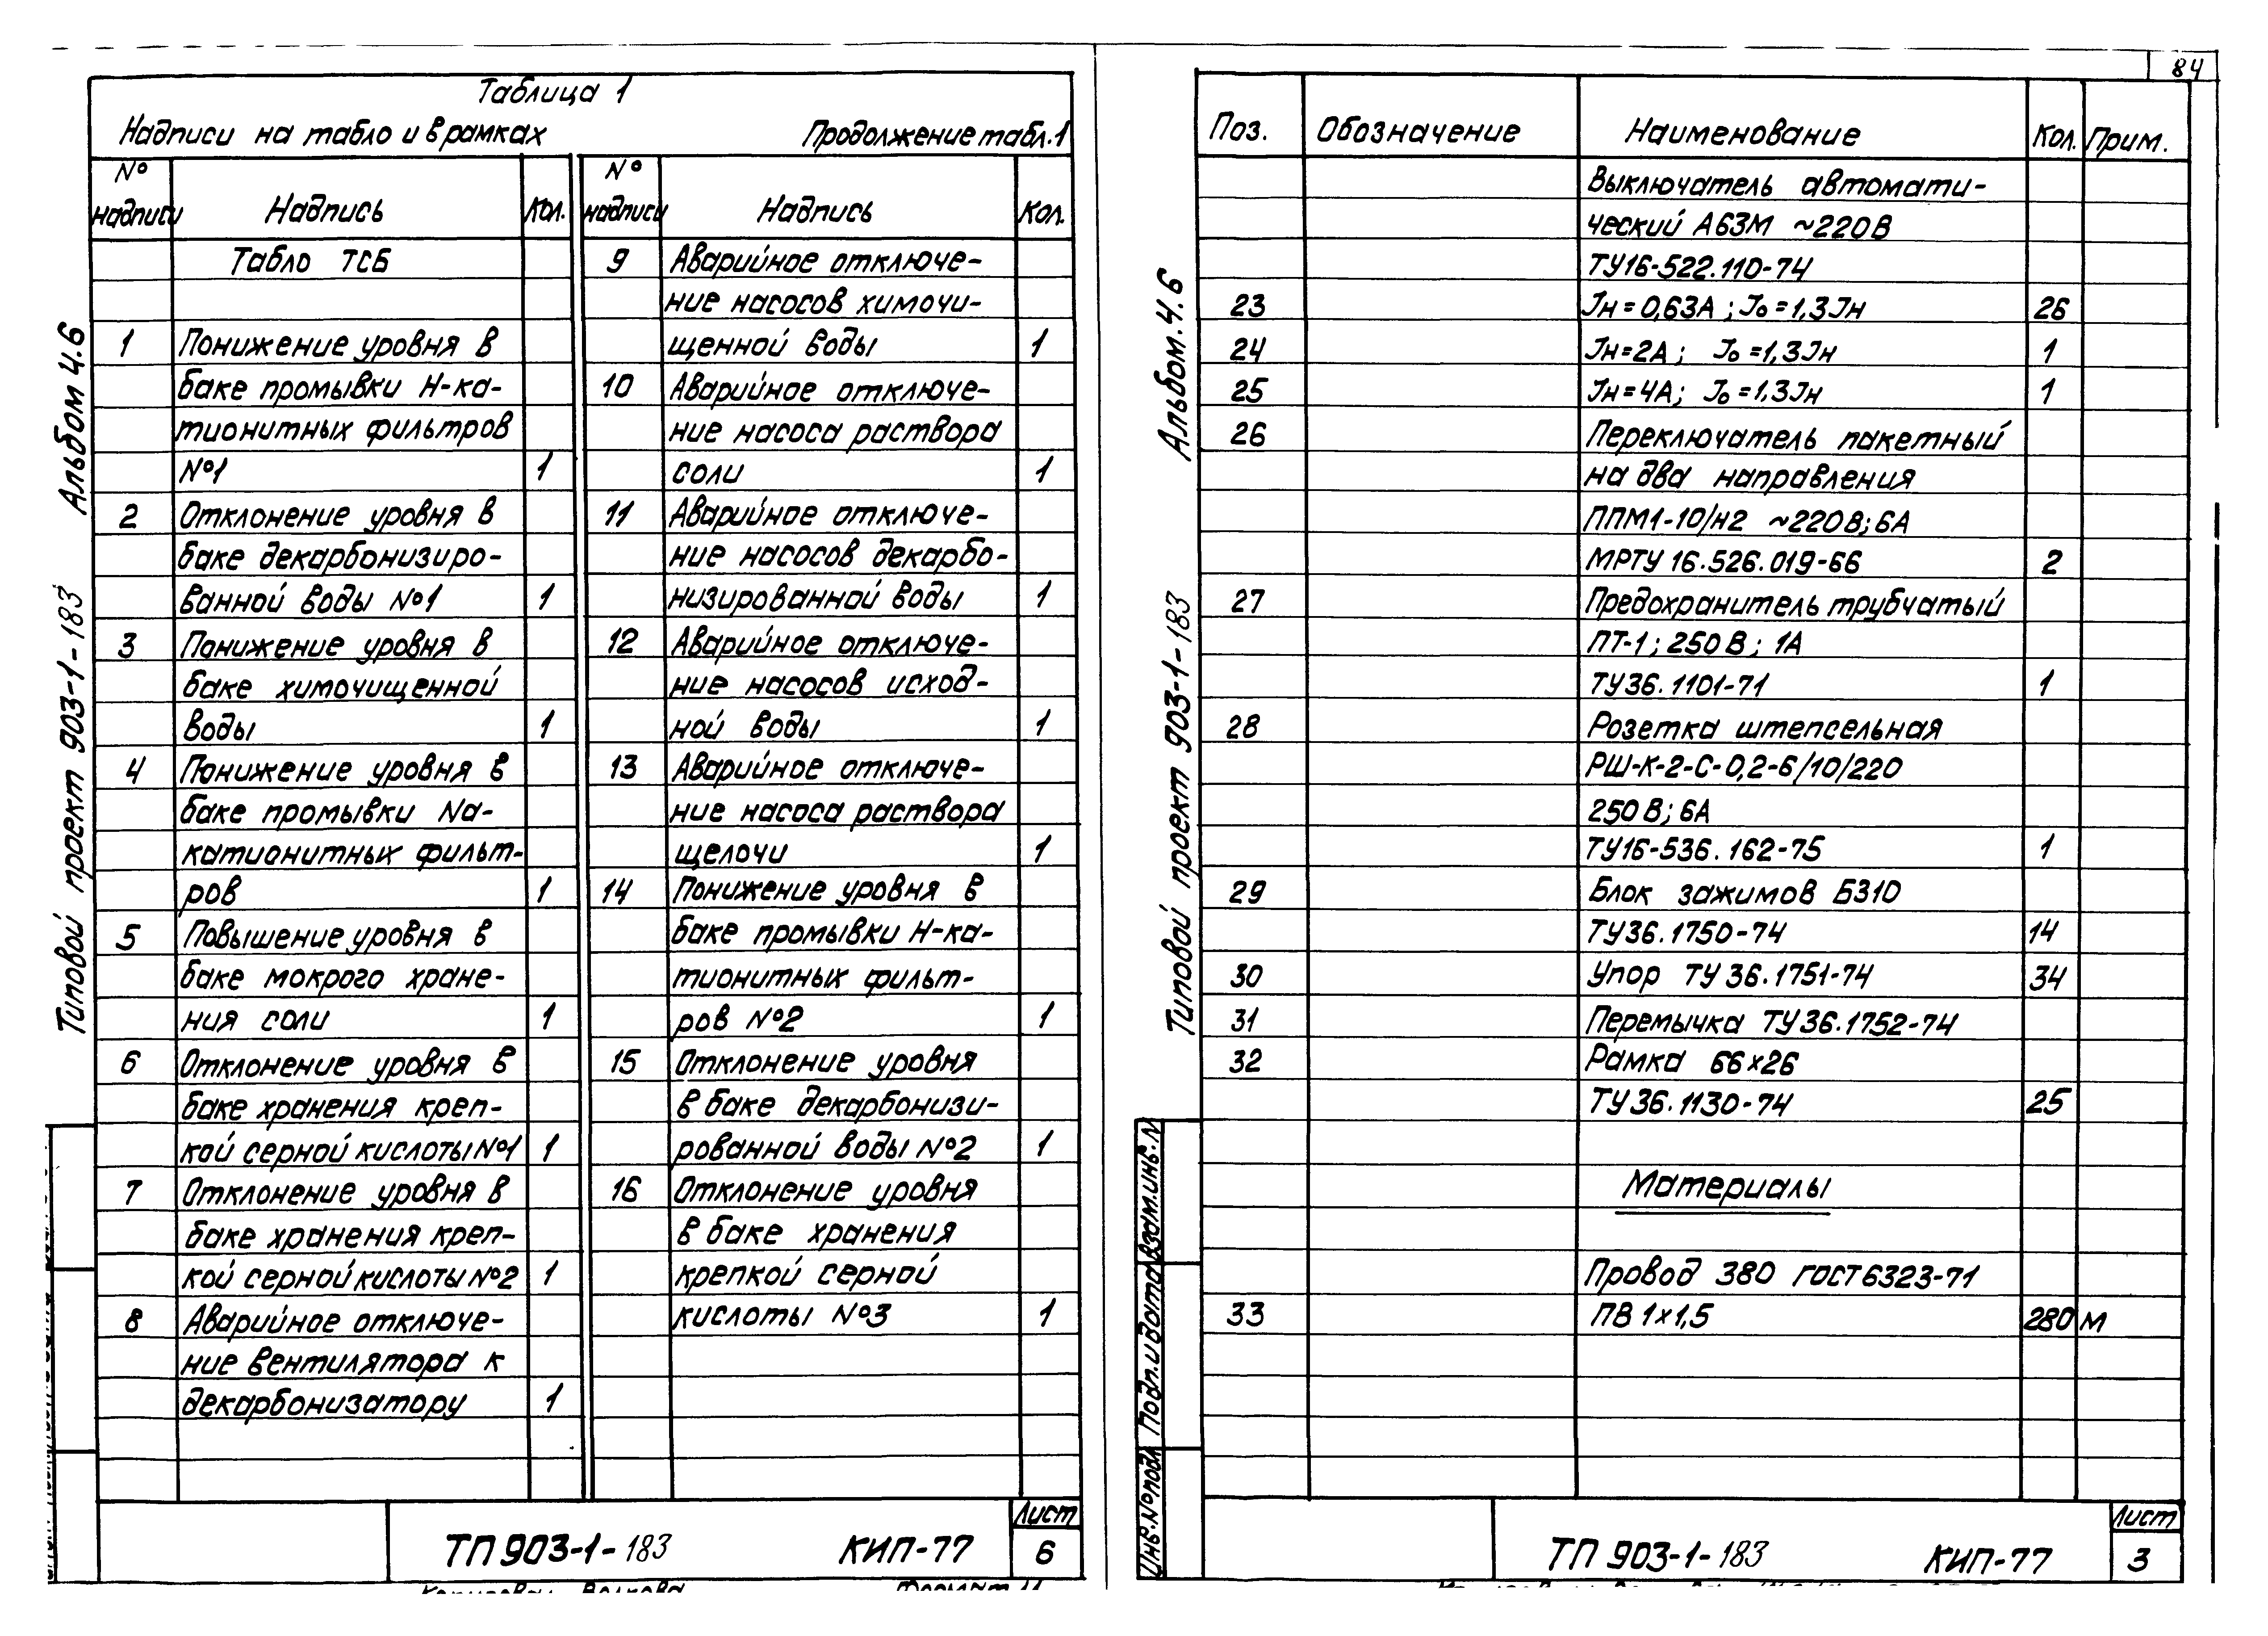 84
Таблица 1
Надписи на табло и в рамках
Продолжение табл.1
№ надписи Надпись Кол.
Табло ТСБ
1 Понижение уровня в
баке промывки Н-ка-
тионитных фильтров
№1 1
2 Отклонение уровня в
баке декарбонизиро-
ванной воды №1 1
3 Понижение уровня в
баке химочищенной
воды 1
4 Понижение уровня в
баке промывки Na-
катионитных фильт-
ров 1
5 Повышение уровня в
баке мокрого хране-
ния соли 1
6 Отклонение уровня в
баке хранения креп-
кой серной кислоты №1 1
7 Отклонение уровня в
баке хранения креп-
кой серной кислоты №2 1
8 Аварийное отключе-
ние вентилятора к
декарбонизатору 1
№ надписи Надпись Кол.
9 Аварийное отключе-
ние насосов химочи-
щенной воды 1
10 Аварийное отключе-
ние насоса раствора
соли 1
11 Аварийное отключе-
ние насосов декарбо-
низированной воды 1
12 Аварийное отключе-
ние насосов исход-
ной воды 1
13 Аварийное отключе-
ние насоса раствора
щелочи 1
14 Понижение уровня в
баке промывки Н-ка-
тионитных фильт-
ров №2 1
15 Отклонение уровня
в баке декарбонизи-
рованной воды №2 1
16 Отклонение уровня
в баке хранения
крепкой серной
кислоты №3 1
ТП 903-1-183 КИП-77
Лист
6
Типовой проект 903-1-183 Альбом 4.6
Поз. Обозначение Наименование Кол. Прим.
Выключатель автомати-
ческий А63М ~220В
ТУ16-522.110-74
23 Jн=0,63А; Jо=1,3Jн 26
24 Jн=2А; Jо=1,3Jн 1
25 Jн=4А; Jо=1,3Jн 1
26 Переключатель пакетный
на два направления
ППМ1-10/н2 ~220В; 6А
МРТУ 16.526.019-66 2
27 Предохранитель трубчатый
ПТ-1; 250В; 1А
ТУ36.1101-71 1
28 Розетка штепсельная
РШ-К-2-С-0,2-6/10/220
250В; 6А
ТУ16-536.162-75 1
29 Блок зажимов Б310
ТУ36.1750-74 14
30 Упор ТУ 36.1751-74 34
31 Перемычка ТУ 36.1752-74
32 Рамка 66х26
ТУ36.1130-74 25
Материалы
Провод 380 ГОСТ 6323-71
33 ПВ 1х1,5 280 м
ТП 903-1-183 КИП-77
Лист
3
Типовой проект 903-1-183 Альбом.4.6
Инв.№подл Подп.и дата Взам.инв.№